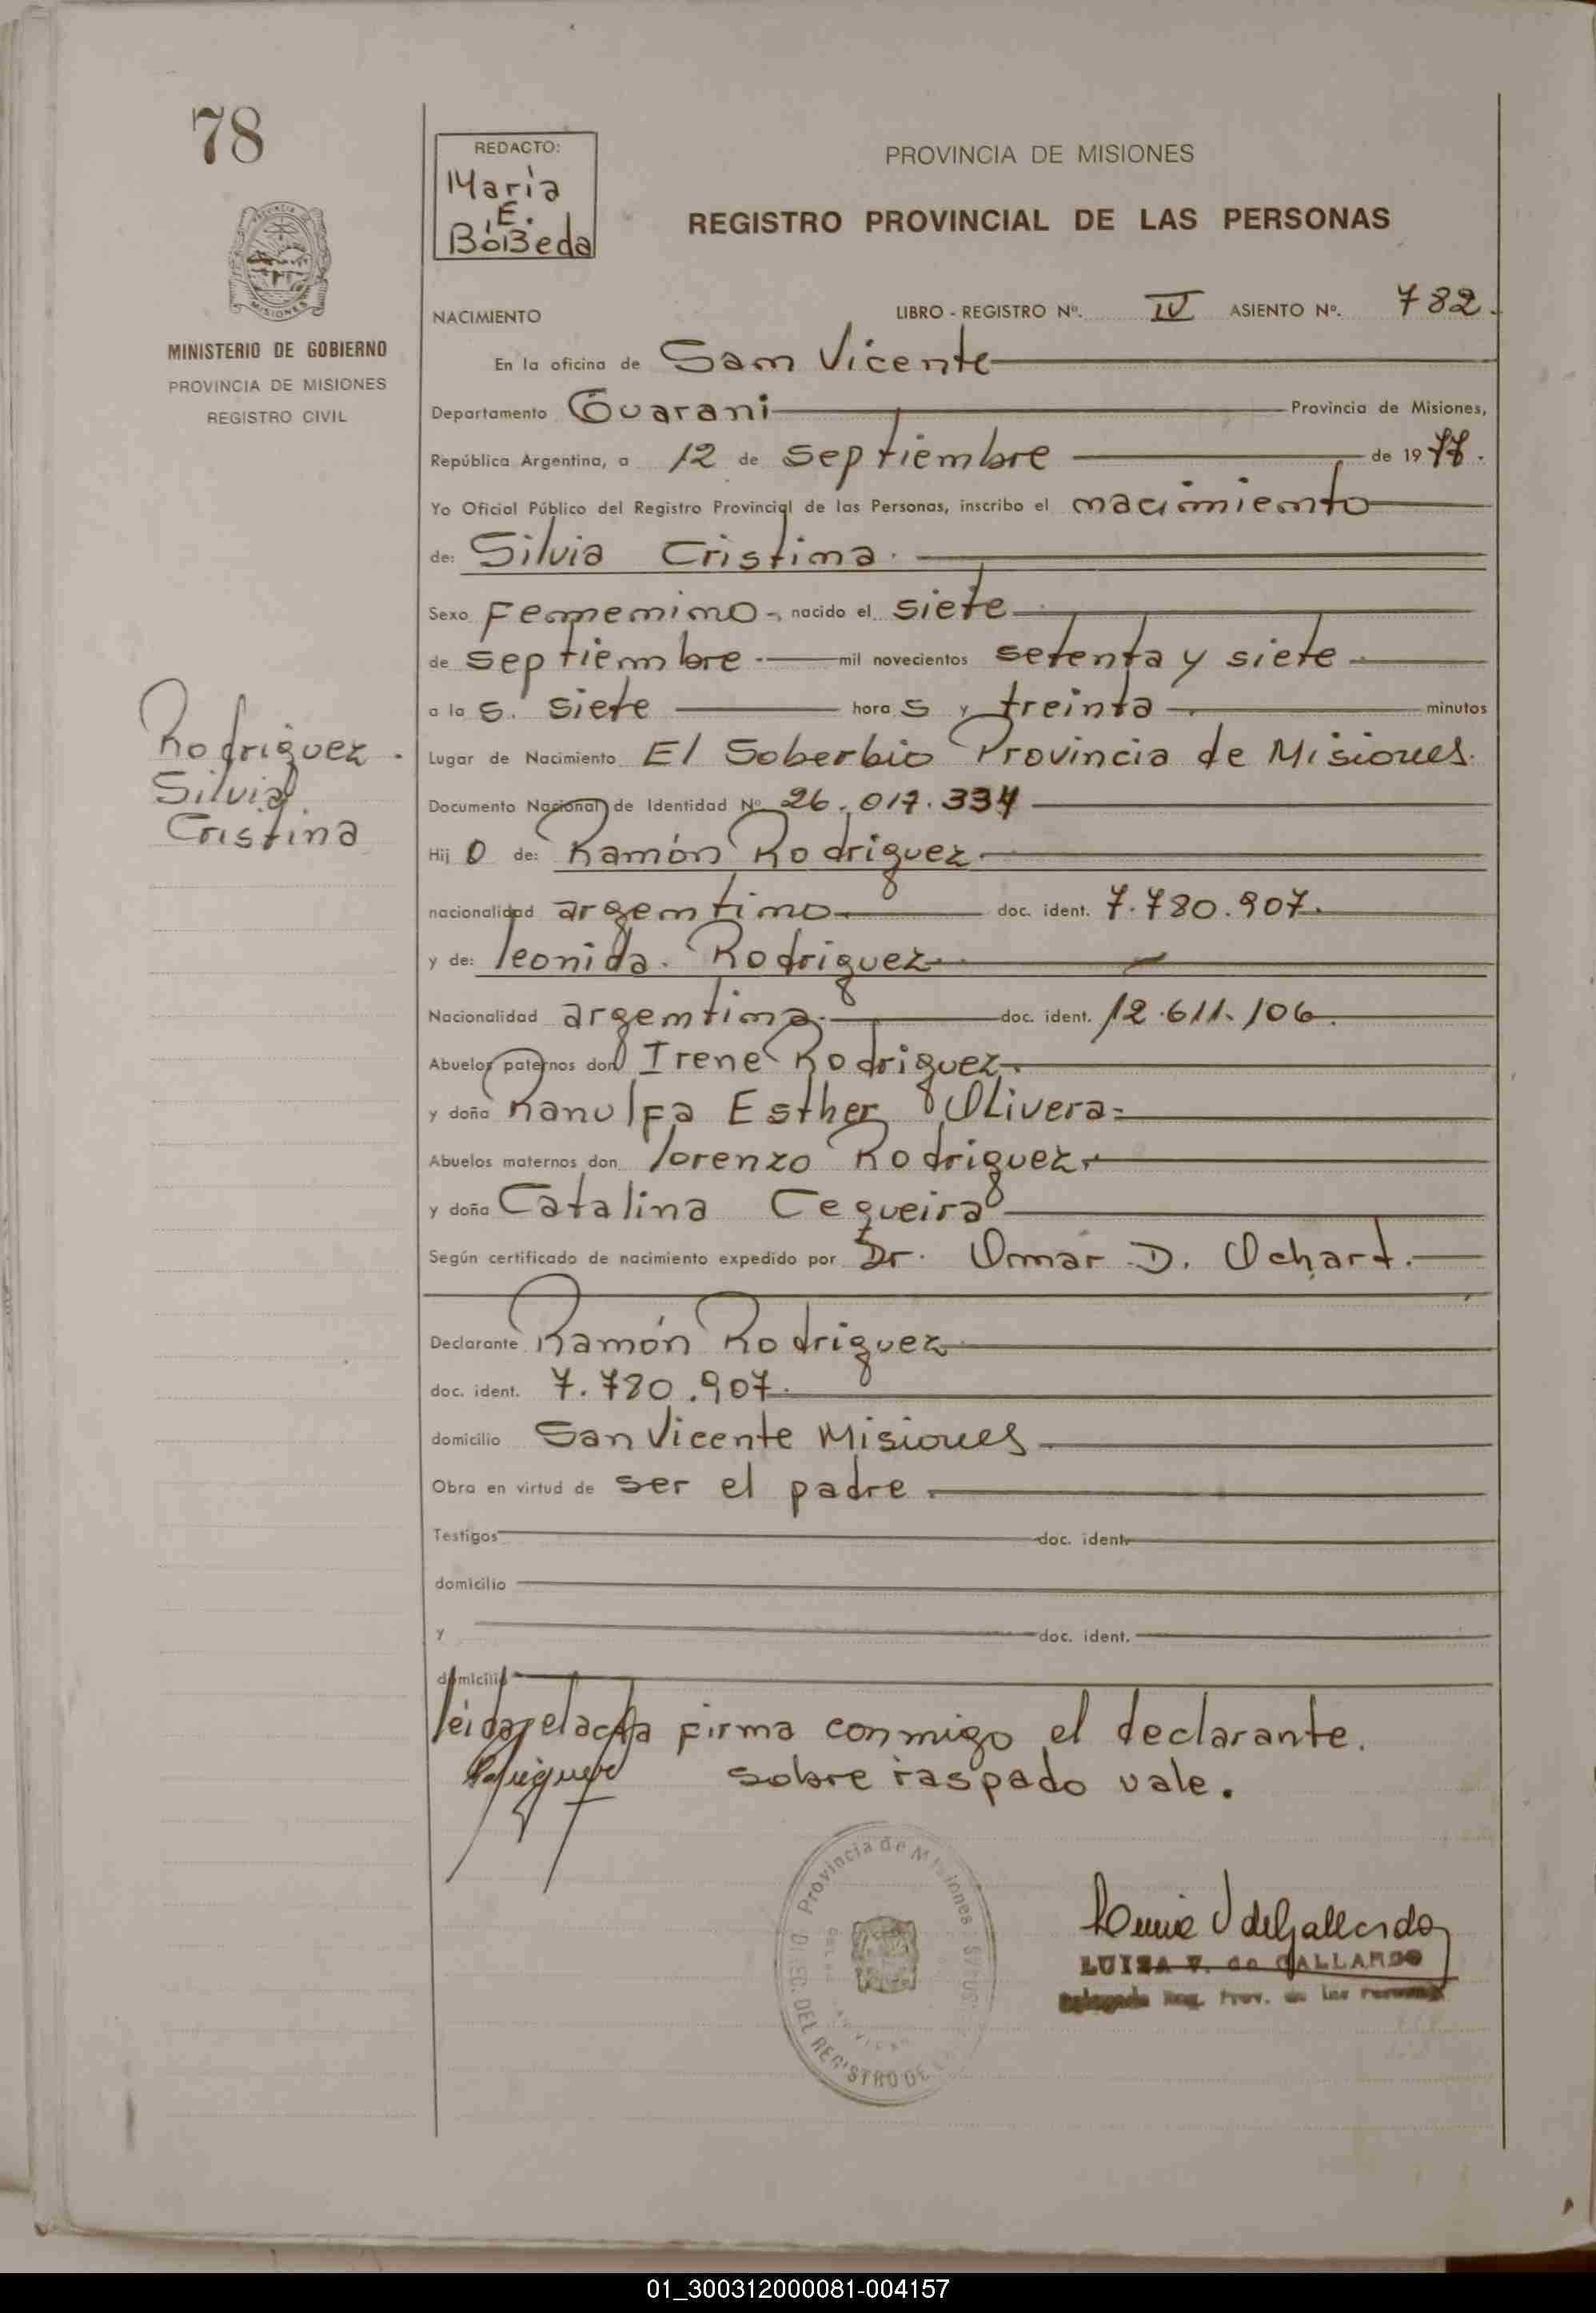 78
REDACTO:
Maria
E.
BoBeda
PROVINCIA DE MISIONES
REGISTRO PROVINCIAL DE LAS PERSONAS
MISIONES
MINISTERIO DE GOBIERNO
PROVINCIA DE MISIONES
REGISTRO CIVIL
NACIMIENTO LIBRO - REGISTRO Nº. IV ASIENTO Nº. 782.
En la oficina de San Vicente
Departamento Guarani Provincia de Misiones,
República Argentina, a 12 de septiembre de 1977.
Yo Oficial Público del Registro Provincial de las Personas, inscribo el nacimiento
de: Silvia Cristina.
Sexo Femenino-, nacido el siete
de septiembre.- mil novecientos setenta y siete
a la s. siete hora s y treinta minutos
Rodriguez.
Silvia
Cristina
Lugar de Nacimiento El Soberbio Provincia de Misiones.
Documento Nacional de Identidad Nº 26.017.334
Hij o de: Ramón Rodriguez
nacionalidad argentino doc. ident. 7.780.907.
y de: leonida. Rodriguez
Nacionalidad argentina. doc. ident. 12.611.106.
Abuelos paternos don Irene Rodriguez.
y doña Ranulfa Esther Olivera
Abuelos maternos don lorenzo Rodriguez
y doña Catalina Cequeira
Según certificado de nacimiento expedido por Dr. Omar D. Ochart.
Declarante Ramón Rodriguez
doc. ident. 7.780.907.
domicilio San Vicente Misiones
Obra en virtud de ser el padre.
Testigos doc. ident.
domicilio
y doc. ident.
domicilio
leida el acta firma conmigo el declarante.
sobre raspado vale.
Provincia de Misiones
DEL REGISTRO DE
LUISA V. de GALLARDO
Reg. Prov. de las
01_300312000081-004157